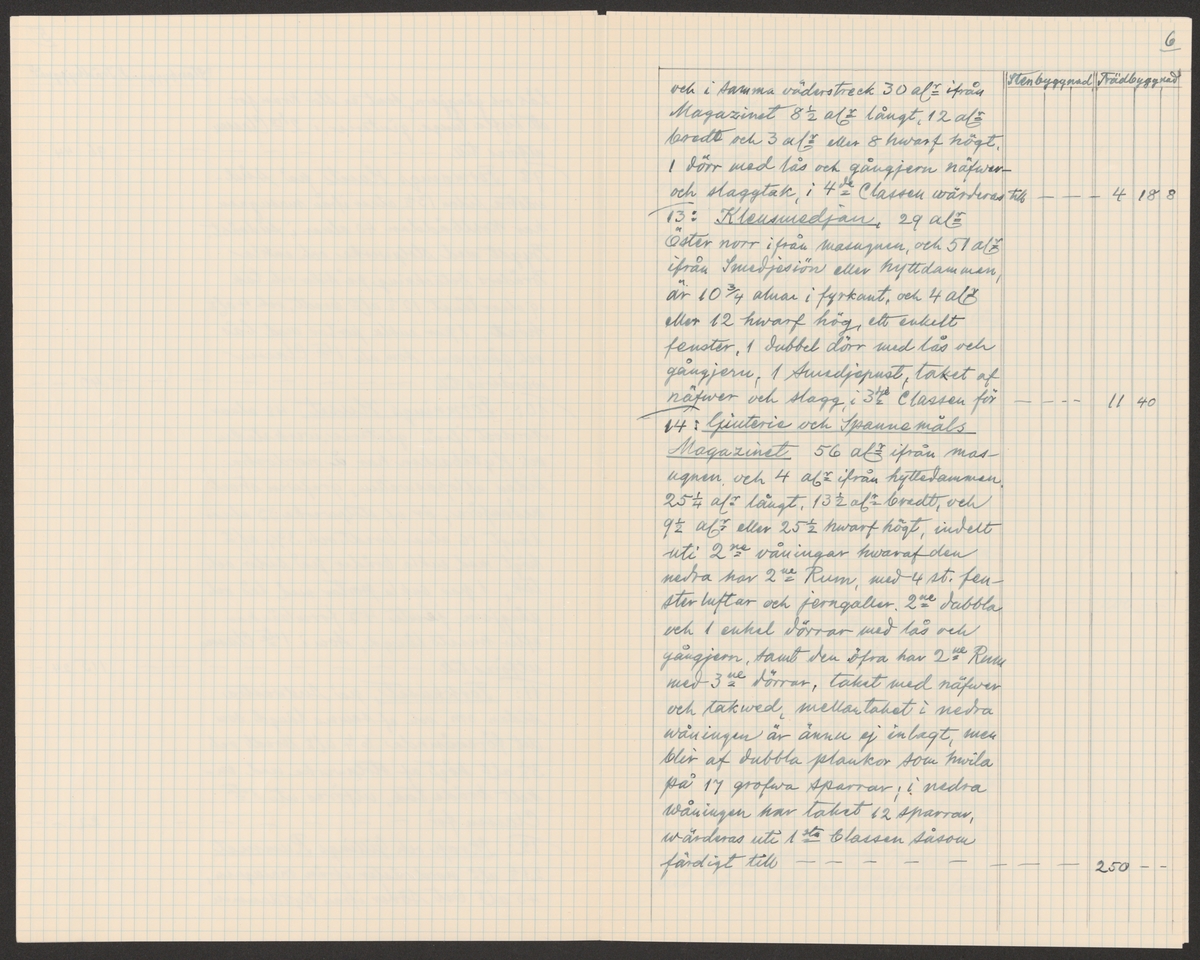 6
Stenbyggnad Trädbyggnad
och i samma väderstreck 30 alnr ifrån
Magazinet 8 1/2 alnr långt, 12 alnr
bredt och 3 alnr eller 8 hwarf högt.
1 dörr med lås och gångjern näfwer-
och slaggtak, i 4de Classen wärderas till — — — 4 18 8
13: Klensmedjan, 29 alnr
Öster norr ifrån masugnen, och 51 alnr
ifrån Smedjesiön eller hyttdammen,
är 10 3/4 alnar i fyrkant, och 4 alnr
eller 12 hwarf hög, ett enkelt
fenster, 1 dubbel dörr med lås och
gångjern, 1 Smedjepust, taket af
näfwer och slagg, i 3die Classen för — - - - 11 40
14: Gjuterie och Spannemåls
Magazinet 56 alnr ifrån mas-
ugnen, och 4 alnr ifrån hyttedammen.
25 1/4 alnr långt, 13 1/2 alnr bredt, och
9 1/2 alnr eller 25 1/2 hwarf högt, indelt
uti 2ne våningar hwaraf den
nedra har 2ne Rum, med 4 st. fen-
ster luftar och jerngaller. 2ne dubbla
och 1 enkel dörrar med lås och
gångjern, samt den öfra har 2ne Rum
med 3ne dörrar, taket med näfwer
och takwed, mellantaket i nedra
wåningen är ännu ej inlagt, men
blir af dubbla plankor som hwila
på 17 grofwa sparrar; i nedra
wåningen har taket 12 sparrar,
wärderas uti 1sta Classen såsom
färdigt till — — — — — — — — 250 - -